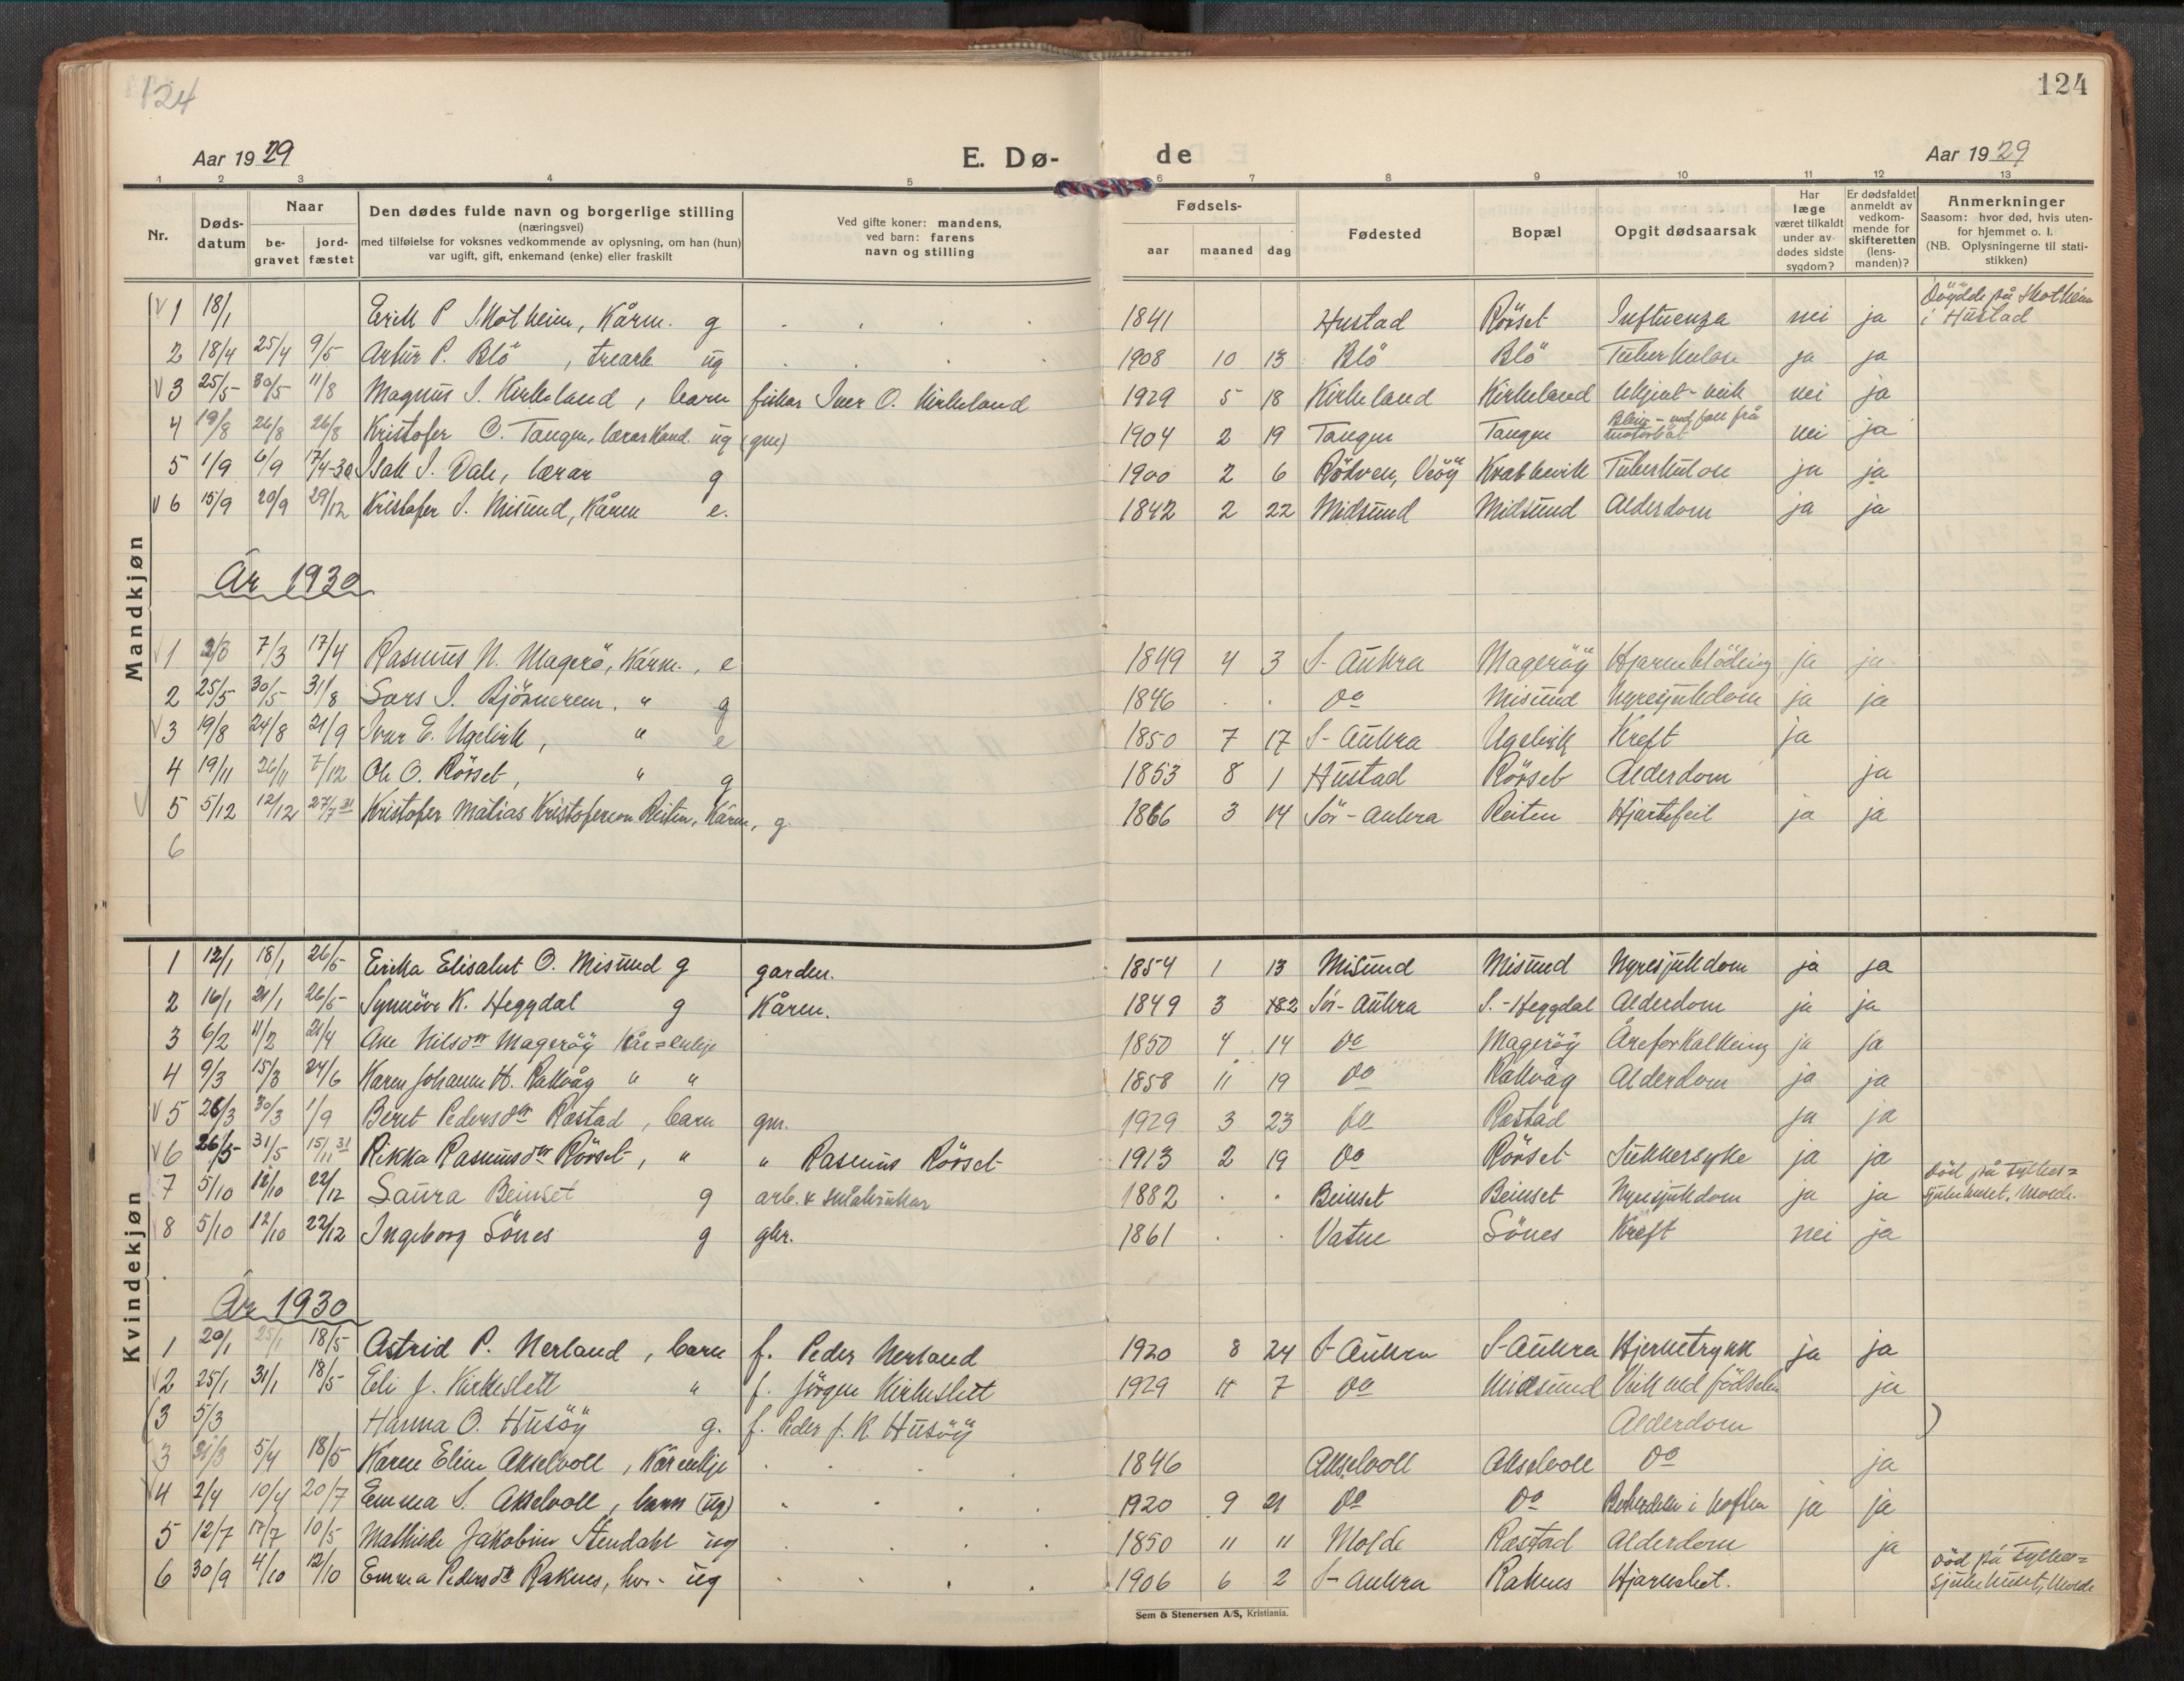 124
124
Aar 1929
E. Dø-
de
Aar 1929
1 2 3 4 5 6 7 8 9 10 11 12 13
Nr.
Døds-
datum
Naar
be-
gravet
jord-
fæstet
Den dødes fulde navn og borgerlige stilling
(næringsvei)
med tilføielse for voksnes vedkommende av oplysning, om han (hun)
var ugift, gift, enkemand (enke) eller fraskilt
Ved gifte koner: mandens,
ved barn: farens
navn og stilling
Fødsels-
aar
maaned
dag
Fødested
Bopæl
Opgit dødsaarsak
Har
læge
været tilkaldt
under av-
dødes sidste
sygdom?
Er dødsfaldet
anmeldt av
vedkom-
mende for
skifteretten
(lens-
manden)?
Anmerkninger
Saasom: hvor død, hvis uten-
for hjemmet o. l.
(NB. Oplysningerne til stati-
stikken)
Mandkjøn
1 18/1 Erik P. Skotheim, Kårm. g 1841 Hustad Rörset Influenza nei ja Döydde på Skotheim i Hustad
2 18/4 25/4 9/5 Artur P. Blö, ug 1908 10 13 Blö Blö Tuberkulose ja ja
3 25/5 30/5 11/8 Magnus I. Kirkeland, barn fiskar Iver O. Kirkeland 1929 5 18 Kirkeland Kirkeland Ukjent - veik nei ja
4 19/8 26/8 26/8 Kristofer O. Tangen, lærarkand. ug (gm) 1904 2 19 Tangen Tangen ved fall frå motorbåt nei ja
5 1/9 6/9 17/4-30 Isak I. Dale, lærar g 1900 2 6 Rödven, Veöy Krabbevik Tuberkulose ja ja
6 15/9 20/9 29/12 Kristofer I. Misund, Kårm e. 1842 2 22 Midsund Midsund Alderdom ja ja
År 1930
1 2/3 7/3 17/4 Rasmus N. Magerö, Kårm., e 1849 4 3 S-Aukra Mageröy Hjarneblöding ja ja
2 25/5 30/5 31/8 Lars I. Björnerem, " g 1846 . . Do Misund Nyresjukdom ja ja
3 19/8 24/8 21/9 Ivar E. Ugelvik, " e 1850 7 17 S-Aukra Ugelvik Kreft ja
4 19/11 26/11 7/12 Ole O. Rörset, " g 1853 8 1 Hustad Rörset Alderdom ja
5 5/12 12/12 27/7 31 Kristofer Matias Kristoferson Reiten, Kårm, g. 1866 3 14 Sör-Aukra Reiten Hjartefeil ja ja
6
Kvindekjøn
1 12/1 18/1 26/5 Erika Elisabet O. Misund g garden. 1854 1 13 Misund Misund Nyresjukdom ja ja
2 16/1 21/1 26/5 Synnöve K. Heggdal g Kårm. 1849 3 Sör-Aukra S.-Heggdal Alderdom ja ja
3 6/2 11/2 21/4 Ane Nilsdtr Mageröy Kår=enkje 1850 4 14 Do Mageröy Åreforkalkning ja ja
4 9/3 15/3 24/6 Karen Johanne H. Rakvåg " " 1858 11 19 Do Rakvåg Alderdom ja ja
5 26/3 30/3 1/9 Beret Pedersdtr Rastad, barn gm. 1929 3 23 Do Rastad ja ja
6 26/5 31/5 15/11 31 Rikka Rasmusdtr Rörset, " " Rasmus Rörset 1913 2 19 Do Rörset Sukkersyke ja ja
7 5/10 12/10 22/12 Laura Beinset g arb. & småbrukar 1882 . . Beinset Beinset Nyresjukdom ja ja Död på Fylkes=sjukehuset, Molde.
8 5/10 12/10 22/12 Ingeborg Sönes g gbr. 1861 . . Vatne Sönes Kreft nei ja
År 1930
1 20/1 25/1 18/5 Astrid P. Nerland, barn f. Peder Nerland 1920 8 24 S-Aukra S-Aukra Hjernetrykk ja ja
2 25/1 31/1 18/5 Eli J. Kirkeslett " f. Jörgen Kirkeslett 1929 11 7 Do Midsund Veik ved födselen ja
(3 5/3 Hanna O. Husöy g. f. Peder J. K. Husöy Alderdom )
3 31/3 5/4 18/5 Karen Eline Akselvoll, Kårenkje 1846 Akselvoll Akselvoll Do ja
4 2/4 10/4 20/7 Emma S. Akselvoll, barn (ug) 1920 9 21 Do Do i hoften ja ja
5 12/7 17/7 10/5 Mathilde Jakobine Stendahl ug 1850 11 11 Molde Rastad Alderdom ja
6 30/9 4/10 12/10 Emma Pedersdtr Raknes, ug 1906 6 2 S-Aukra Raknes Död på Fylkes=sjukehuset, Molde
Sem & Stenersen A/S, Kristiania.